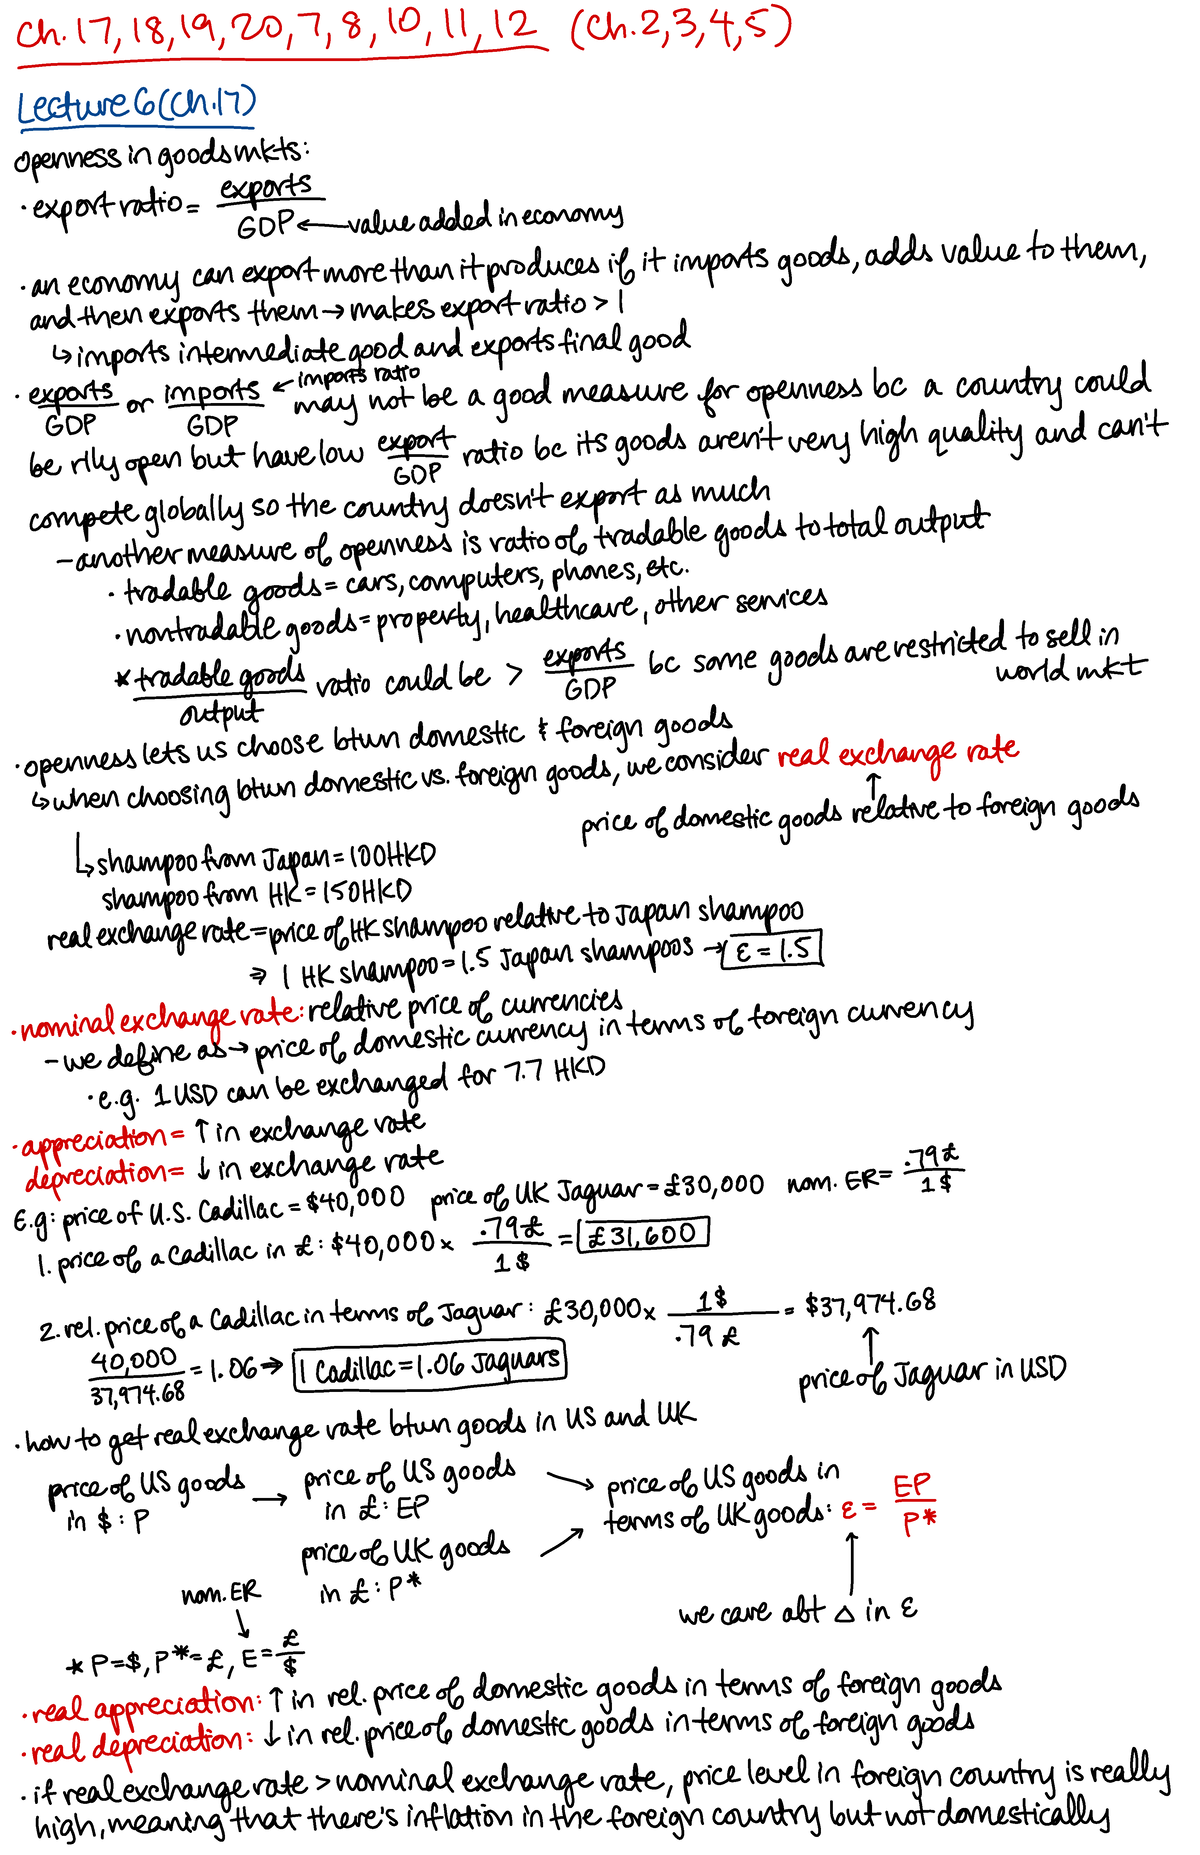 Ch. 17, 18, 19, 20, 7, 8, 10, 11, 12 (Ch. 2, 3, 4, 5)
Lecture 6 (Ch. 17)
openness in goods mkts:
· export ratio = exports / GDP ← value added in economy
· an economy can export more than it produces if it imports goods, adds value to them,
and then exports them → makes export ratio > 1
↳ imports intermediate good and exports final good
· exports / GDP or imports / GDP ← imports ratio may not be a good measure for openness bc a country could
be rlly open but have low export / GDP ratio bc its goods aren't very high quality and can't
compete globally so the country doesn't export as much
- another measure of openness is ratio of tradable goods to total output
· tradable goods = cars, computers, phones, etc.
· nontradable goods = property, healthcare, other services
* tradable goods / output ratio could be > exports / GDP bc some goods are restricted to sell in
world mkt
· openness lets us choose btwn domestic & foreign goods
↳ when choosing btwn domestic vs. foreign goods, we consider real exchange rate
↑
price of domestic goods relative to foreign goods
↳ shampoo from Japan = 100HKD
shampoo from HK = 150HKD
real exchange rate = price of HK shampoo relative to Japan shampoo
⇒ 1 HK shampoo = 1.5 Japan shampoos → ε = 1.5
· nominal exchange rate: relative price of currencies
- we define as → price of domestic currency in terms of foreign currency
· e.g. 1 USD can be exchanged for 7.7 HKD
· appreciation = ↑ in exchange rate
depreciation = ↓ in exchange rate
E.g: price of U.S. Cadillac = $40,000 price of UK Jaguar = £30,000 nom. ER = .79£ / 1$
1. price of a Cadillac in £: $40,000 × .79£ / 1$ = £31,600
2. rel. price of a Cadillac in terms of Jaguar: £30,000 × 1$ / .79£ = $37,974.68
↑
price of Jaguar in USD
40,000 / 37,974.68 = 1.06 ⇒ 1 Cadillac = 1.06 Jaguars
· how to get real exchange rate btwn goods in US and UK
price of US goods in $: P → price of US goods in £: EP → price of US goods in terms of UK goods: ε = EP / P*
price of UK goods in £: P* →
↑
we care abt Δ in ε
nom. ER
↓
* P = $, P* = £, E = £ / $
· real appreciation: ↑ in rel. price of domestic goods in terms of foreign goods
· real depreciation: ↓ in rel. price of domestic goods in terms of foreign goods
· if real exchange rate > nominal exchange rate, price level in foreign country is really
high, meaning that there's inflation in the foreign country but not domestically